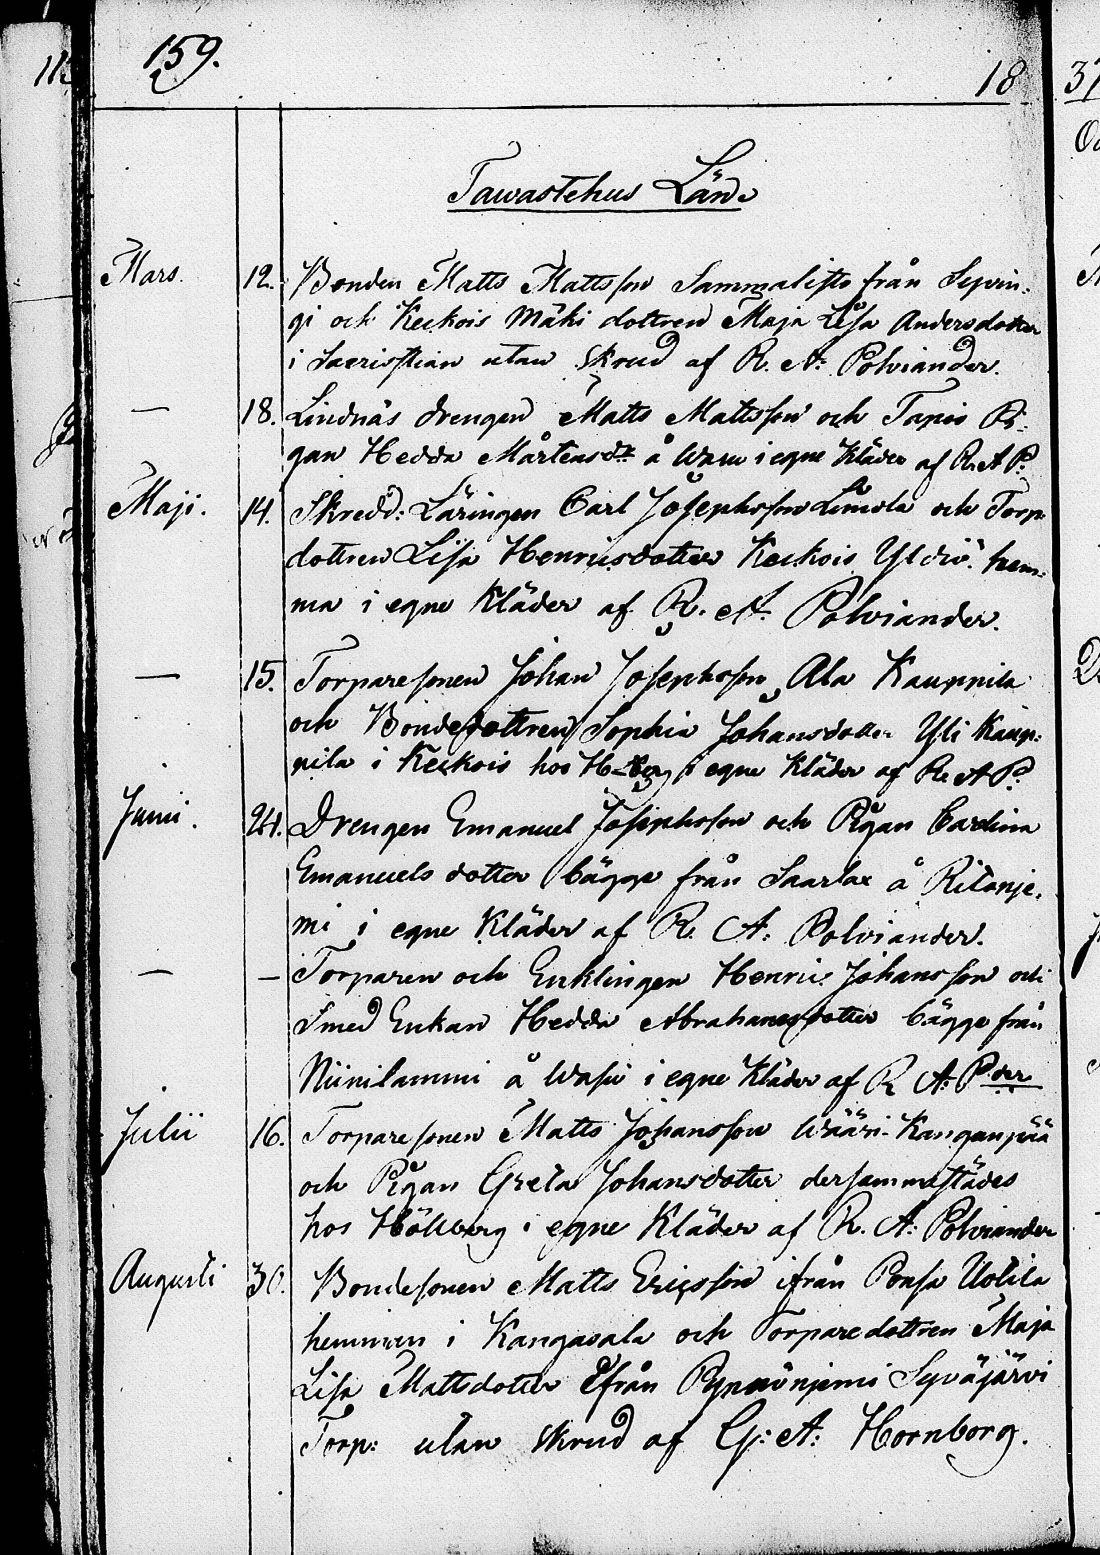 159.
18
Tawastehus Län
Mars. 12. Bonden Matts Mattsson Sammalisto från Seprin-
gi och Keckois Mäki dottren Maja Lisa Andersdotter
i Sacristian utan Skrud af R. A: Polviander.
— 18. Lindnäs drengen Matts Mattsson och Tapio Pi-
gan Hedda Mårtensdr å Waru i egne Kläder af R. A P:
Maji. 14. Skredd: Läringen Carl Josephsson Linnola och Torp-
dottren Lisa Henricsdotter Keckois Yl hem-
ma i egne Kläder af R. A. Polviander.
— 15. Torparesonen Johan Josephsson Ala Kauppila
och Bondedottren Sophia Johansdotter Yli Kaup-
pila i Keckois hos i egne Kläder af R. A P:
Junii. 24. Drengen Emanuel Josephsson och Pigan Carolina
Emanuels dotter bägge från Saarlax å Ritanje-
mi i egne Kläder af R. A: Polviander.
— — Torparen och Enklingen Henric Johansson och
Smed Enkan Hedda Abrahamsdotter bägge från
Niinilammi å Wasu i egne Kläder af R A: P:der
Julii 16. Torparesonen Matts Johansson Wääri-Kanganpää
och Pigan Greta Johansdotter dersammastädes
hos Hölberg i egne Kläder af R. A: Polviander
Augusti 30. Bondesonen Matts Ericsson ifrån Ponsa Uotila
hemman i Kangasala och Torparedottren Maja
Lisa Mattsdotter ifrån Pynnönjemi Syväjärvi
Torp: utan Skrud af G: A: Hornborg.